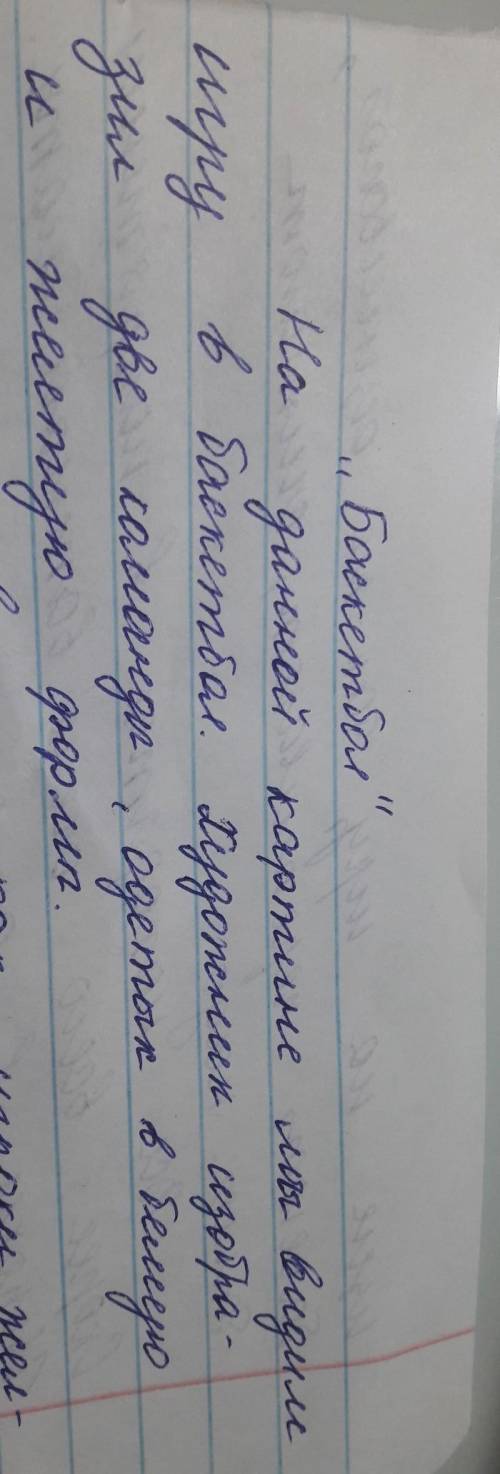 „Баскетбол"
На данной картине мы видим
игру в баскетбол. Художник изобра-
зил две команды, одетых в белую
и желтую формы.
игроки жел-